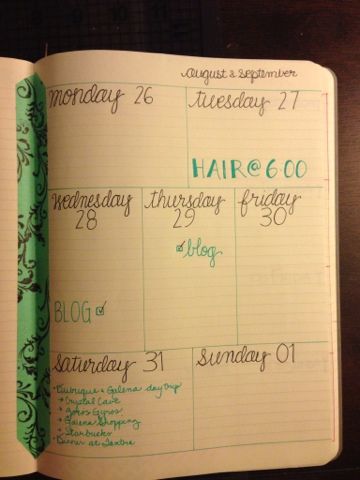 august & september
monday 26
tuesday 27
HAIR@6:00
wednesday
28
BLOG
thursday
29
blog
friday
30
saturday 31
• Dubuque & Galena day trip
→ Crystal Cave
→ Gyros
→ Galena Shopping
→ Starbucks
• Dinner at
sunday 01